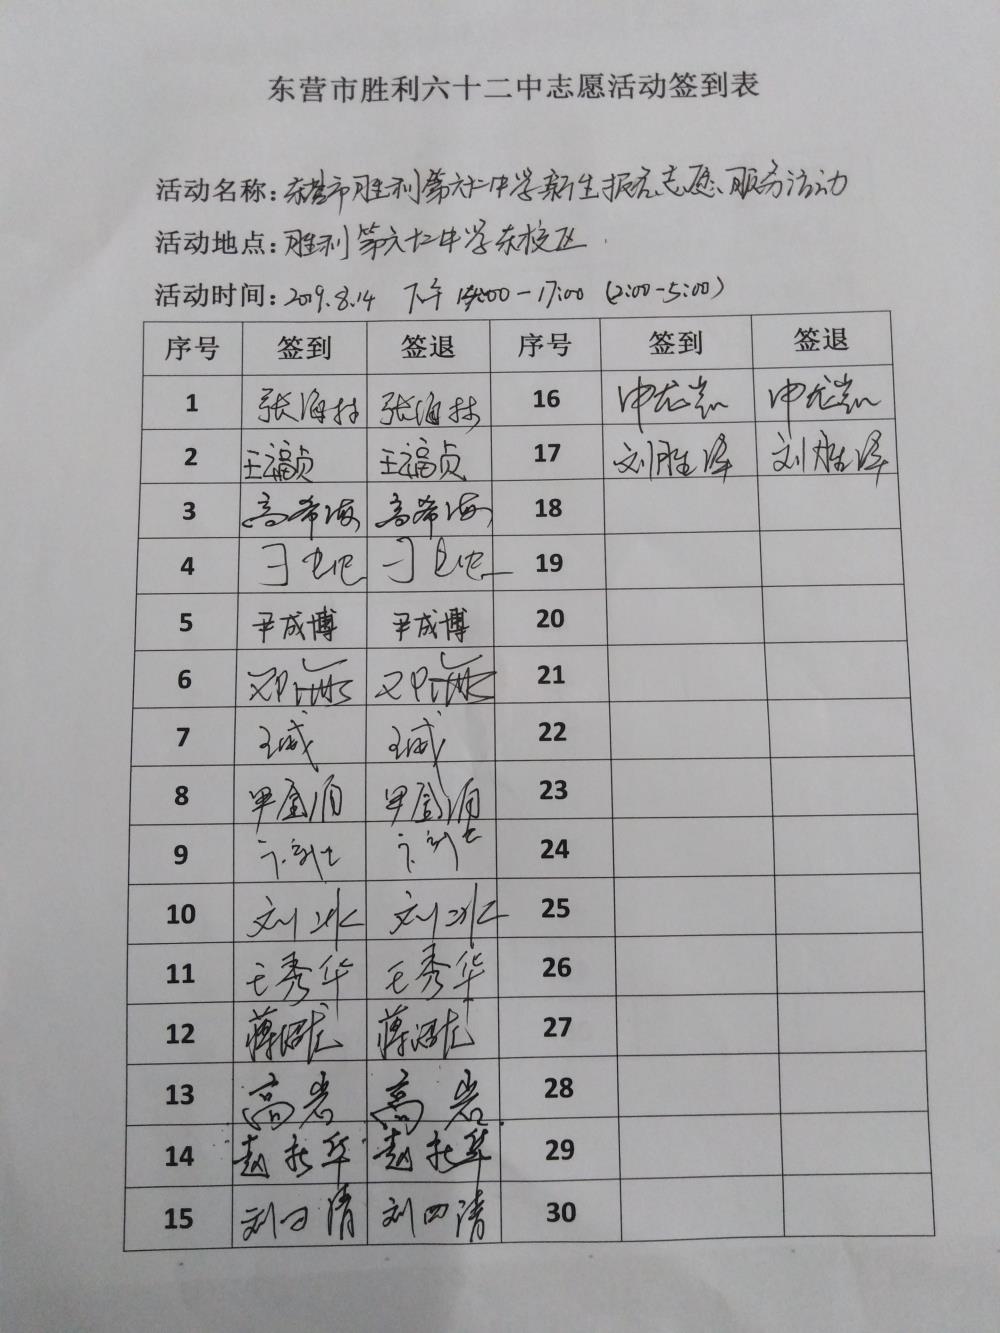 东营市胜利六十二中志愿活动签到表
活动名称：东营市胜利第六十二中学新生报名志愿服务活动
活动地点：胜利第六十二中学东校区
活动时间：2019.8.14 下午 14:00-17:00 (2:00-5:00)
序号 签到 签退 序号 签到 签退
1 张海林 张海林 16
2 王福贞 王福贞 17 刘胜泽 刘胜泽
3 高希海 高希海 18
4 19
5 尹成博 尹成博 20
6 21
7 王诚 王诚 22
8 23
9 24
10 刘冰 刘冰 25
11 王秀华 王秀华 26
12 27
13 高岩 高岩 28
14 29
15 刘四清 刘四清 30